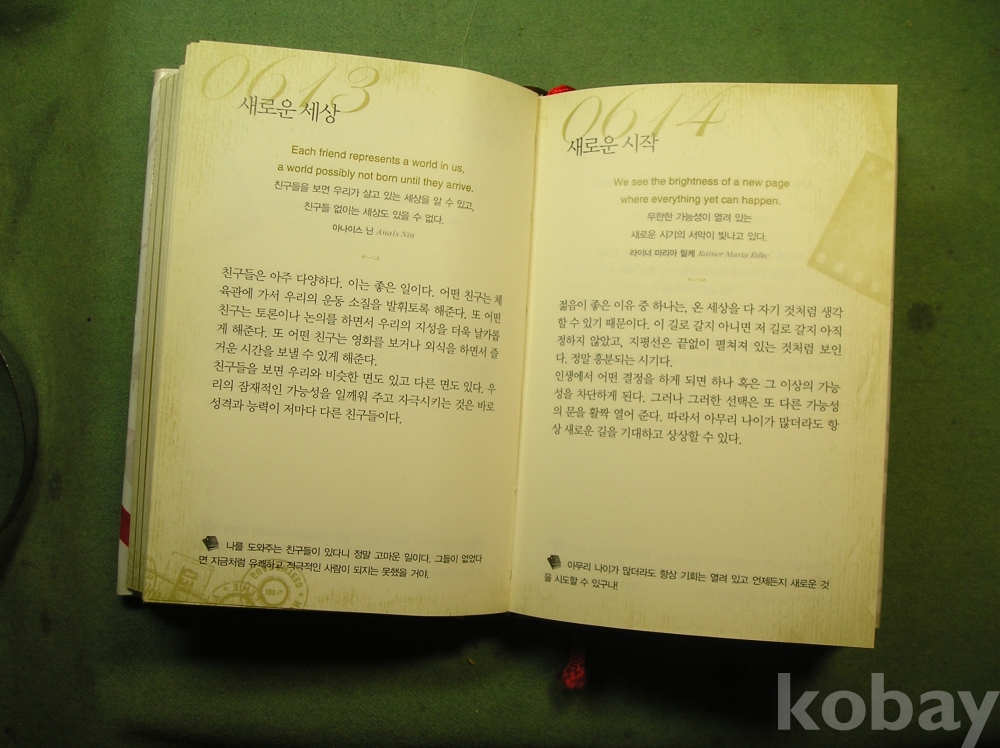 0613
새로운 세상
Each friend represents a world in us,
a world possibly not born until they arrive.
친구들을 보면 우리가 살고 있는 세상을 알 수 있고,
친구들 없이는 세상도 있을 수 없다.
아나이스 닌 Anaïs Nin
친구들은 아주 다양하다. 이는 좋은 일이다. 어떤 친구는 체
육관에 가서 우리의 운동 소질을 발휘토록 해준다. 또 어떤
친구는 토론이나 논의를 하면서 우리의 지성을 더욱 날카롭
게 해준다. 또 어떤 친구는 영화를 보거나 외식을 하면서 즐
거운 시간을 보낼 수 있게 해준다.
친구들을 보면 우리와 비슷한 면도 있고 다른 면도 있다. 우
리의 잠재적인 가능성을 일깨워 주고 자극시키는 것은 바로
성격과 능력이 저마다 다른 친구들이다.
나를 도와주는 친구들이 있다니 정말 고마운 일이다. 그들이 없었다
면 지금처럼 유쾌하고 적극적인 사람이 되지는 못했을 거야.
0614
새로운 시작
We see the brightness of a new page
where everything yet can happen.
무한한 가능성이 열려 있는
새로운 시기의 서막이 빛나고 있다.
라이너 마리아 릴케 Rainer Maria Rilke
젊음이 좋은 이유 중 하나는, 온 세상을 다 자기 것처럼 생각
할 수 있기 때문이다. 이 길로 갈지 아니면 저 길로 갈지 아직
정하지 않았고, 지평선은 끝없이 펼쳐져 있는 것처럼 보인
다. 정말 흥분되는 시기다.
인생에서 어떤 결정을 하게 되면 하나 혹은 그 이상의 가능
성을 차단하게 된다. 그러나 그러한 선택은 또 다른 가능성
의 문을 활짝 열어 준다. 따라서 아무리 나이가 많더라도 항
상 새로운 길을 기대하고 상상할 수 있다.
아무리 나이가 많더라도 항상 기회는 열려 있고 언제든지 새로운 것
을 시도할 수 있구나!
kobay